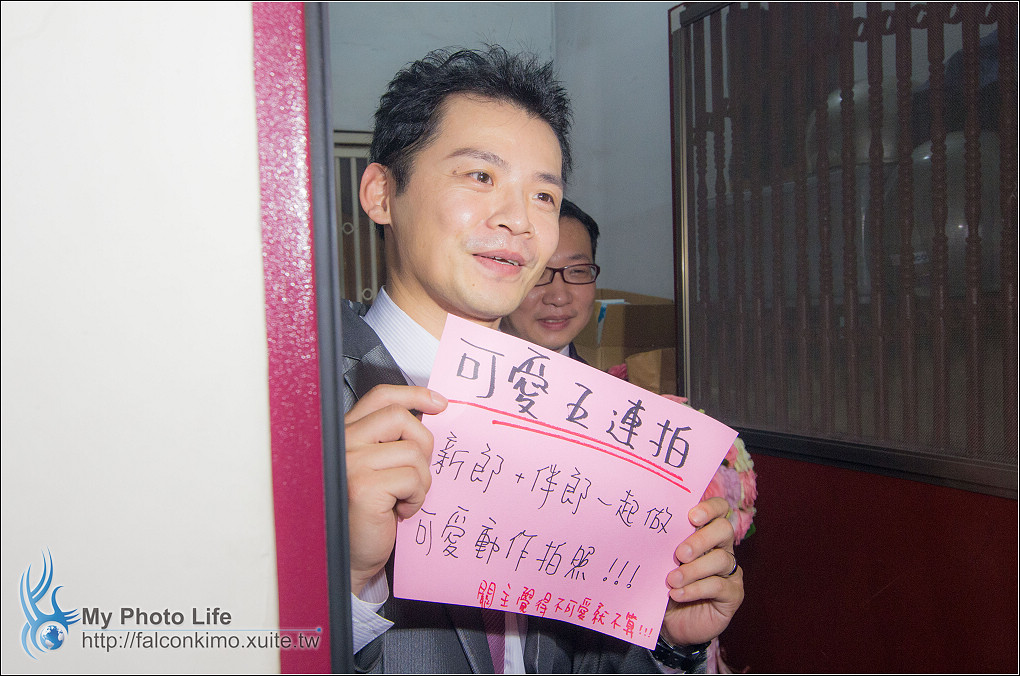 可愛五連拍
新郎+伴郎一起做
可愛動作拍照!!!
關主覺得不可愛就不算!!!
My Photo Life
http://falconkimo.xuite.tw